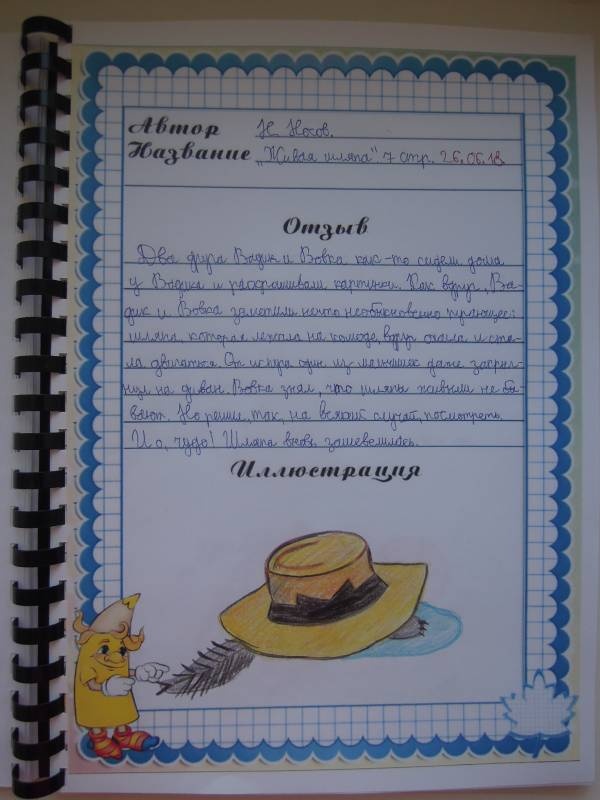 Автор Н. Носов.
Название „Живая шляпа" 7 стр. 26.06.18
Отзыв
Два друга Вадик и Вовка как-то сидели дома
у Вадика и раскрашивали картинки. Как вдруг, Ва-
дик и Вовка заметили нечто необыкновенно пугающее:
шляпа, которая лежала на комоде, вдруг упала и ста-
ла двигаться. От испуга один из мальчишек даже запрыг-
нул на диван. Вовка знал, что шляпы живыми не бы-
вают. Но решил, так, на всякий случай, посмотреть.
И о, чудо! Шляпа вновь зашевелилась.
Иллюстрация